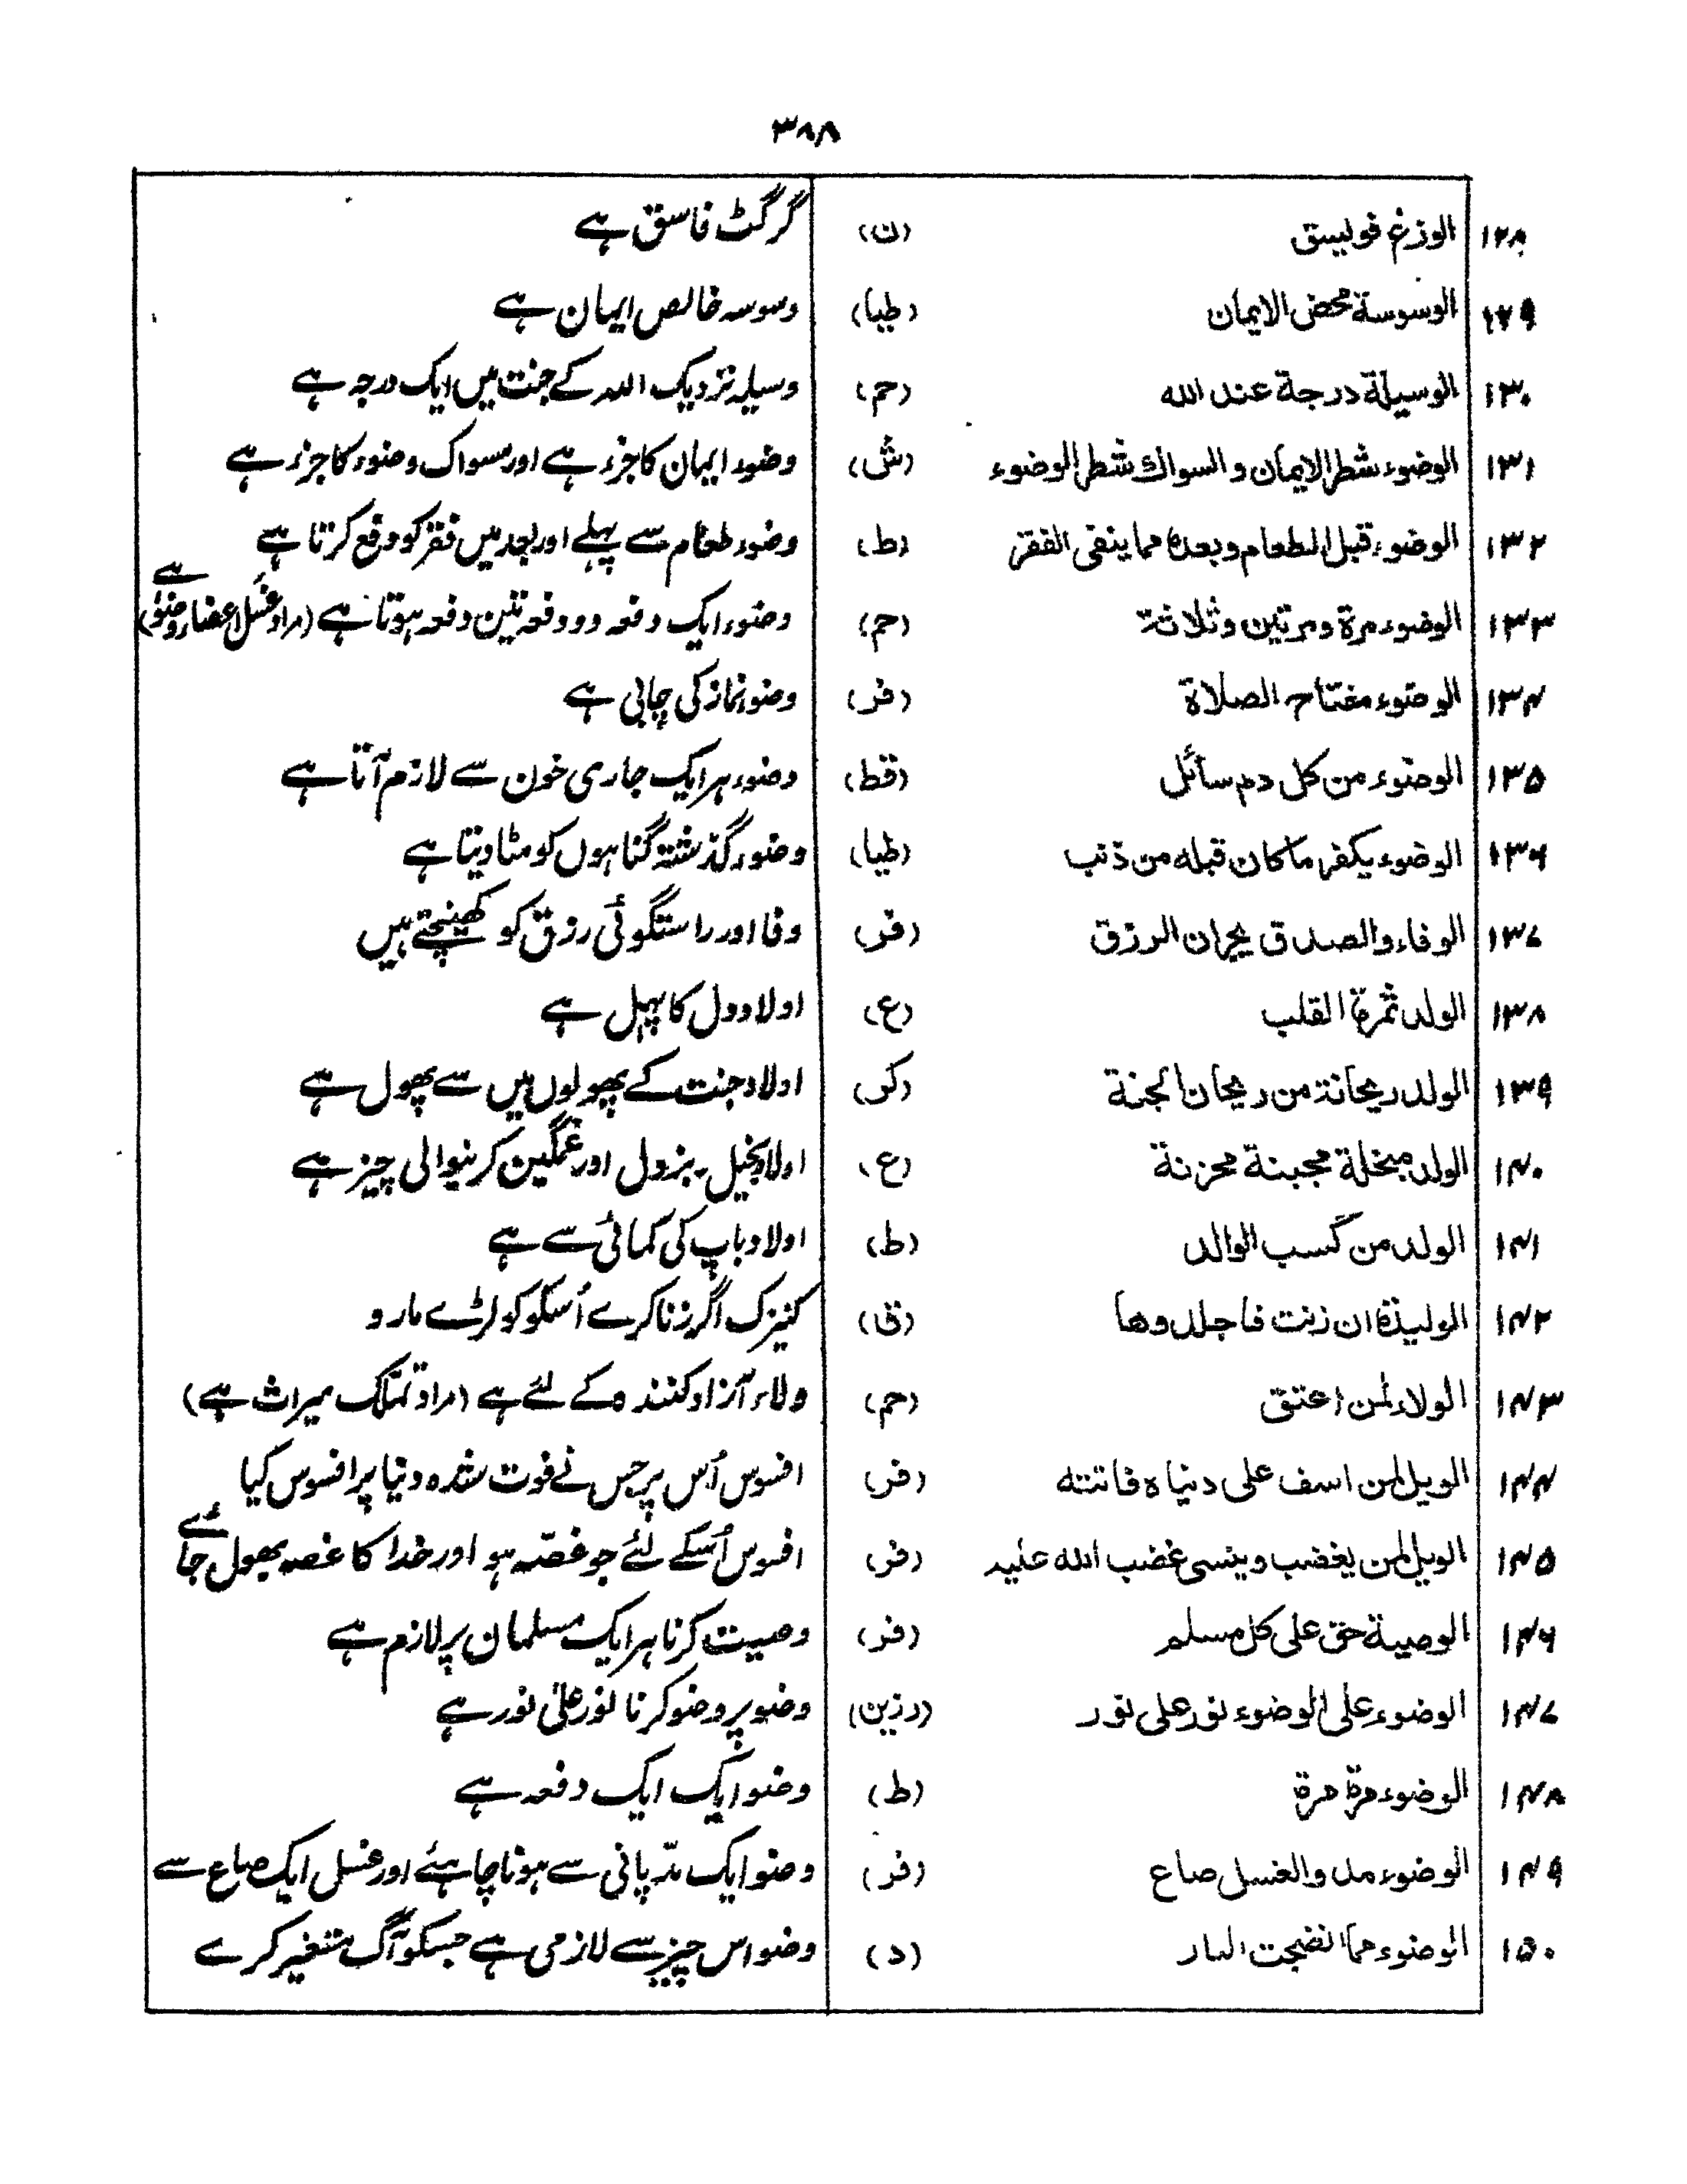 ۳۸۸
۱۲۸ الوزغ فویسق (ن) گرگٹ فاسق ہے
۱۲۹ الوسوسة محض الایمان (طیا) وسوسہ خالص ایمان ہے
۱۳۰ الوسیلة درجة عند الله (حم) وسیلہ نزدیک اللہ کے جنت میں ایک درجہ ہے
۱۳۱ الوضوء شطر الایمان والسواك شطر الوضوء (ش) وضوء ایمان کا جزء ہے اور مسواک وضوء کا جزء ہے
۱۳۲ الوضوء قبل الطعام وبعده مما ینفی الفقر (ط) وضوء طعام سے پہلے اور بعد میں فقر کو دفع کرتا ہے
۱۳۳ الوضوء مرة ومرتین وثلاثة (حم) وضوء ایک دفعہ دو دفعہ تین دفعہ ہوتا ہے (مراد غسل اعضاء وضو ہے)
۱۳۴ الوضوء مفتاح الصلاة (فر) وضو نماز کی چابی ہے
۱۳۵ الوضوء من کل دم سائل (قط) وضوء ہر ایک جاری خون سے لازم آتا ہے
۱۳۶ الوضوء یکفر ما کان قبله من ذنب (طیا) وضوء گذشتہ گناہوں کو مٹا دیتا ہے
۱۳۷ الوفاء والصدق یجران الرزق (فر) وفا اور راستگوئی رزق کو کھینچتے ہیں
۱۳۸ الولد ثمرة القلب (ع) اولاد دل کا پھل ہے
۱۳۹ الولد ریحانة من ریحان الجنة (کر) اولاد جنت کے پھولوں میں سے پھول ہے
۱۴۰ الولد مبخلة مجبنة محزنة (ع) اولاد بخیل۔ بزدل اور غمگین کرنیوالی چیز ہے
۱۴۱ الولد من کسب الوالد (ط) اولاد باپ کی کمائی سے ہے
۱۴۲ الولیدة ان زنت فاجلدوها (ق) کنیزک اگر زنا کرے اُسکو کوڑے مارو
۱۴۳ الولاء لمن اعتق (حم) ولاء آزاد کنندہ کے لئے ہے (مراد تملک میراث ہے)
۱۴۴ الویل لمن اسف علی دنیاه فاتته (فر) افسوس اُس پر جس نے فوت شدہ دنیا پر افسوس کیا
۱۴۵ الویل لمن یغضب وینسی غضب الله علیه (فر) افسوس اُسکے لئے جو غصّہ ہو اور خدا کا غصہ بھول جائے
۱۴۶ الوصیة حق علی کل مسلم (فر) وصیت کرنا ہر ایک مسلمان پر لازم ہے
۱۴۷ الوضوء علی الوضوء نور علی نور (رزین) وضو پر وضو کرنا نور علیٰ نور ہے
۱۴۸ الوضوء مرة مرة (ط) وضو ایک ایک دفعہ ہے
۱۴۹ الوضوء مد والغسل صاع (فر) وضو ایک مدّ پانی سے ہونا چاہئے اور غسل ایک صاع سے
۱۵۰ الوضوء مما انضجت النار (د) وضو اس چیز سے لازمی ہے جسکو آگ متغیر کرے